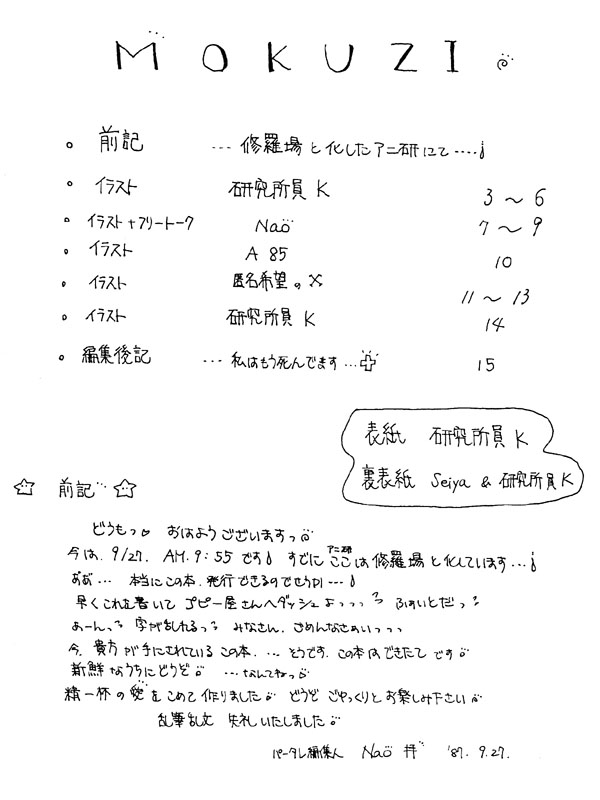 MOKUZI
。 前記 … 修羅場と化したアニ研にて……!
。 イラスト 研究所員K 3〜6
。 イラスト+フリートーク Nao 7〜9
。 イラスト A 85 10
。 イラスト 匿名希望のX 11〜13
。 イラスト 研究所員K 14
。 編集後記 … 私はもう死んでます… 15
表紙 研究所員K
裏表紙 Seiya & 研究所員K
☆ 前記 ☆
どうもっ♡ おはようございますっ。
今は、9/27. AM.9:55です! すでにここは修羅場と化しています…!
アニ研
おお… 本当にこの本、発行できるのでせうか…!
早くこれを書いてコピー屋さんへダッシュよっっっ? ふぁいとだっ?
あーんっ? 字が乱れるっ? みなさん、ごめんなさぁいっっっ
今、貴方が手にされているこの本、…そうです、この本はできたてです。
新鮮なうちにどうぞ。 …なんてねっ。
精一杯の愛をこめて作りました。 どうぞ ごゆっくりとお楽しみ下さい。
乱筆乱文 失礼いたしました。
パータレ編集人 Nao 拝 '87. 9.27.